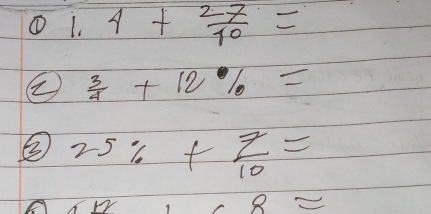 ① 1.4 + 27/10 =
② 3/4 + 12% =
③ 25% + 7/10 =
8 =